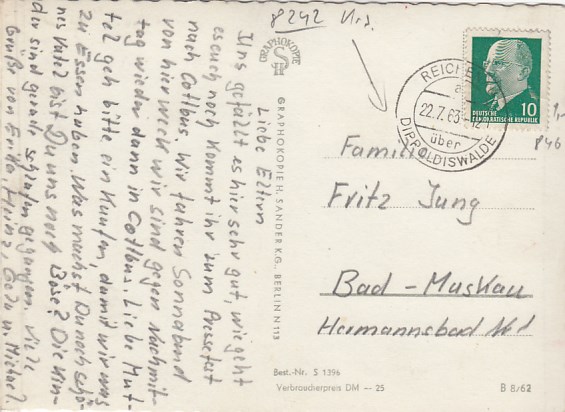 8242 Krs.
GRAPHOKOPIE
Liebe Eltern
Uns gefällt es hier sehr gut, wie geht
es euch noch kommt ihr zum Pressefest
nach Cottbus. Wir fahren Sonnabend
von hier weck wir sind gegen Nachmit-
tag wieder dann in Cottbus. Liebe Mut-
ter geh bitte ein Kaufen, damit wir was
zu Essen haben. Was machst Du noch schö-
nes Vater bist Du uns noch Böse? Die Kin-
der sind gerade schlafen gegangen. Viele
Grüße von Erika, Heinz, u Michael.
GRAPHOKOPIE H. SANDER KG., BERLIN N 113
REICHE
a
22.7.63-12
über
DIPPOLDISWALDE
10
DEUTSCHE
DEMOKRATISCHE REPUBLIK
1,-
846
Familie
Fritz Jung
Bad-Muskau
Hermannsbad Nr 1
Best.-Nr. S 1396
Verbraucherpreis DM -.25
B 8/62